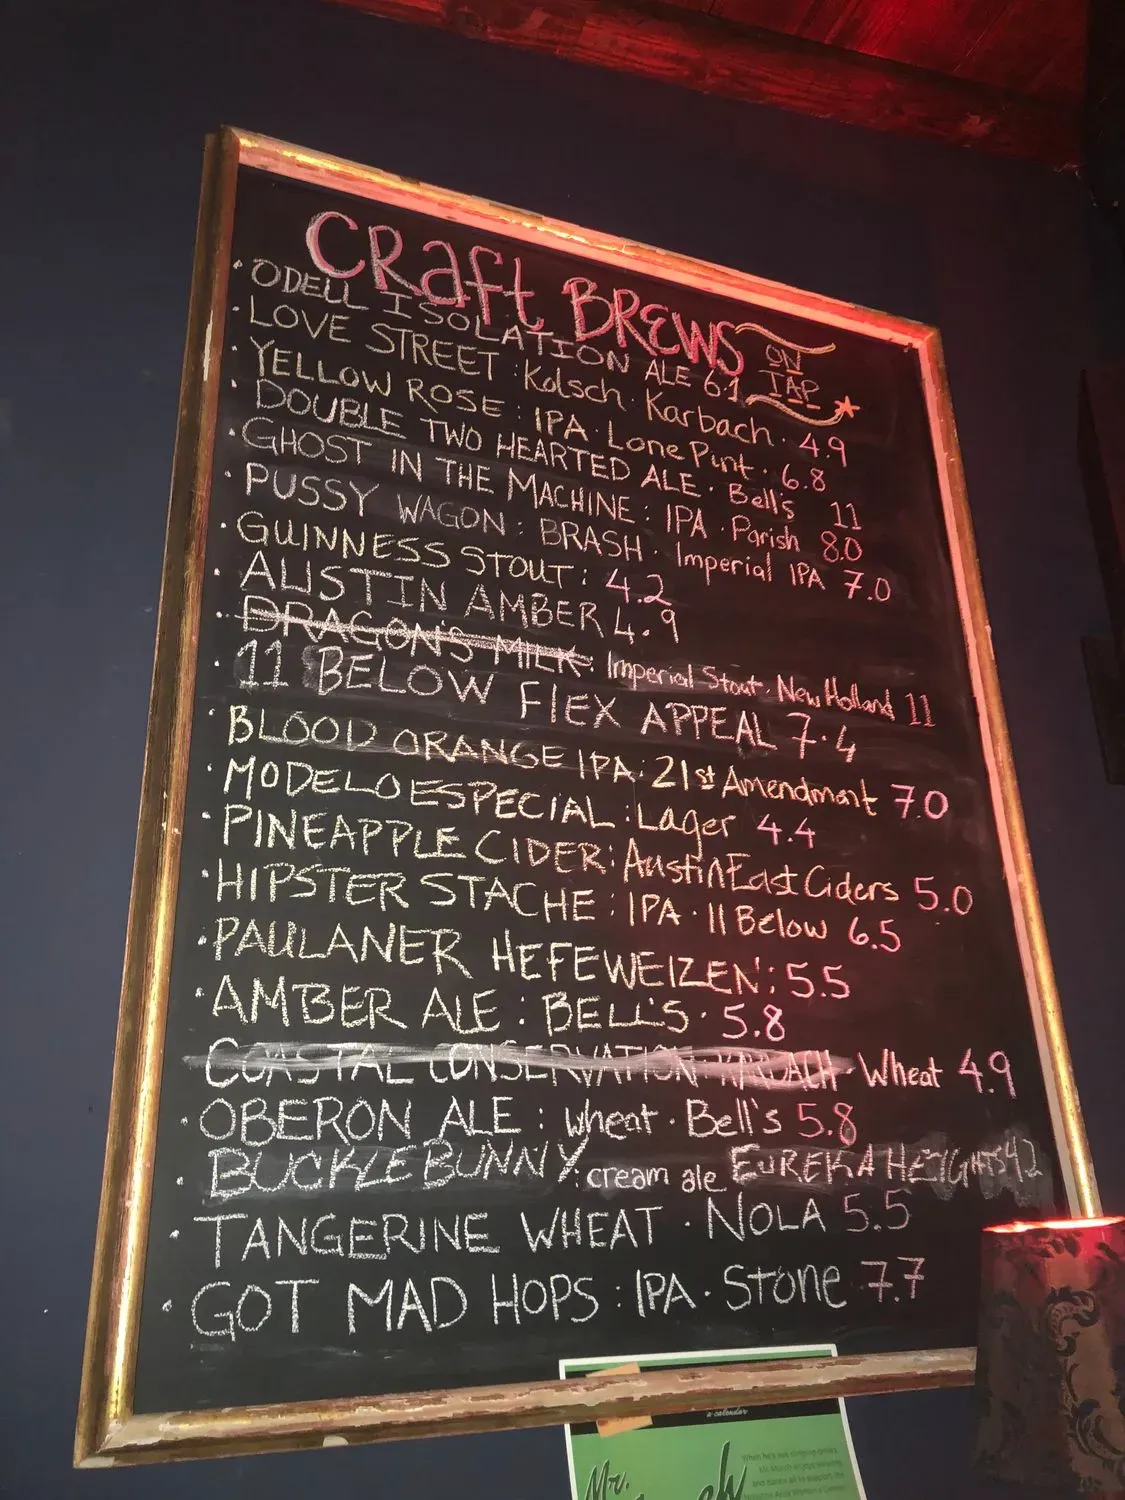 CRaft BREWS ON TAP
ODELL ISOLATION ALE 6.1
LOVE STREET : Kolsch · Karbach · 4.9
YELLOW ROSE : IPA · Lone Pint · 6.8
DOUBLE TWO HEARTED ALE · Bell's 11
GHOST IN THE MACHINE : IPA · Parish 8.0
PUSSY WAGON : BRASH · Imperial IPA 7.0
GUINNESS STOUT : 4.2
AUSTIN AMBER 4.9
DRAGON'S MILK : Imperial Stout · New Holland 11
11 BELOW FLEX APPEAL 7.4
BLOOD ORANGE IPA : 21st Amendment 7.0
MODELO ESPECIAL : Lager 4.4
PINEAPPLE CIDER : Austin East Ciders 5.0
HIPSTER STACHE : IPA · 11 Below 6.5
PAULANER HEFEWEIZEN : 5.5
AMBER ALE : BELL'S · 5.8
COASTAL CONSERVATION KARBACH Wheat 4.9
OBERON ALE : wheat · Bell's 5.8
BUCKLE BUNNY : cream ale EUREKA HEIGHTS 4.2
TANGERINE WHEAT · NOLA 5.5
GOT MAD HOPS : IPA · Stone 7.7
a calendar
When he's not singing
Mr.